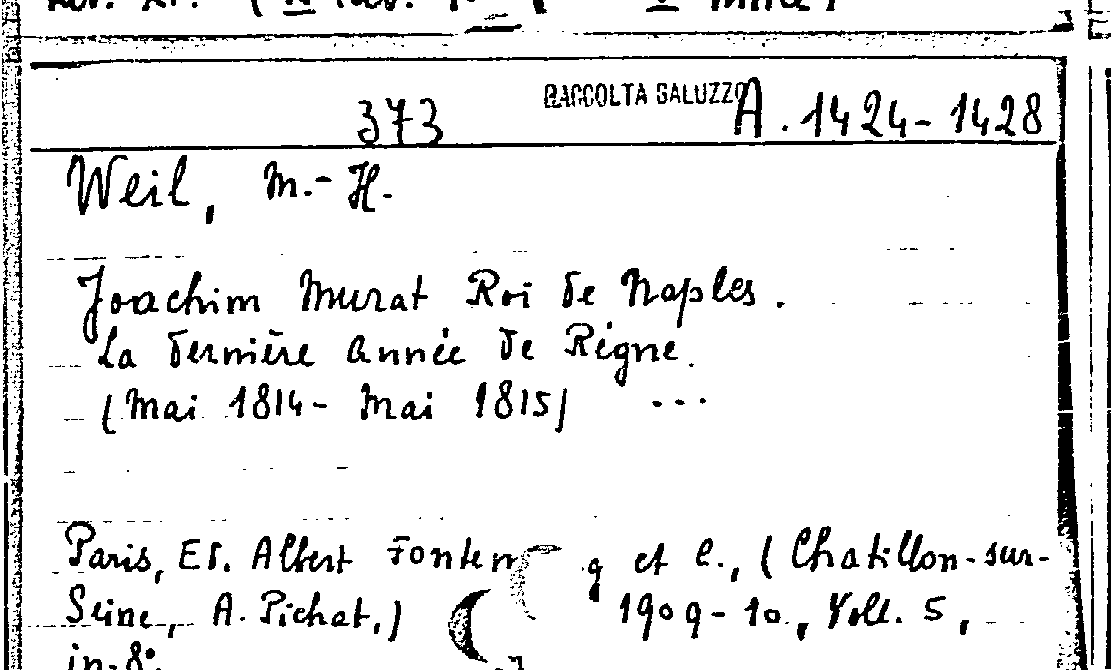 RACCOLTA GALUZZO
373 A. 1424-1428
Weil, M.-H.
Joachim Murat Roi de Naples.
La dernière année de Règne.
(Mai 1814- Mai 1815) ...
Paris, Ed. Albert g et C., (Chatillon-sur-
Seine, A. Pichat,) 1909-10, Voll. 5,
in-8°.